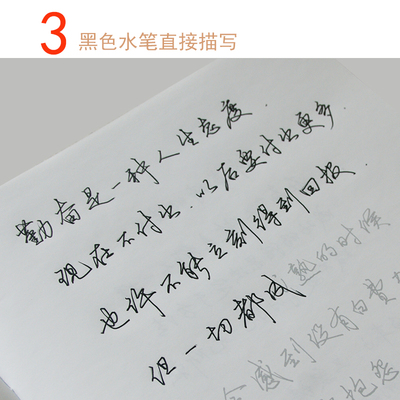 3 黑色水笔直接描写
勤奋是一种人生态度.
现在不付出.以后要付出更多.
也许不能立刻得到回报.
但一切都成熟的时候
会感到没有白费
抱怨